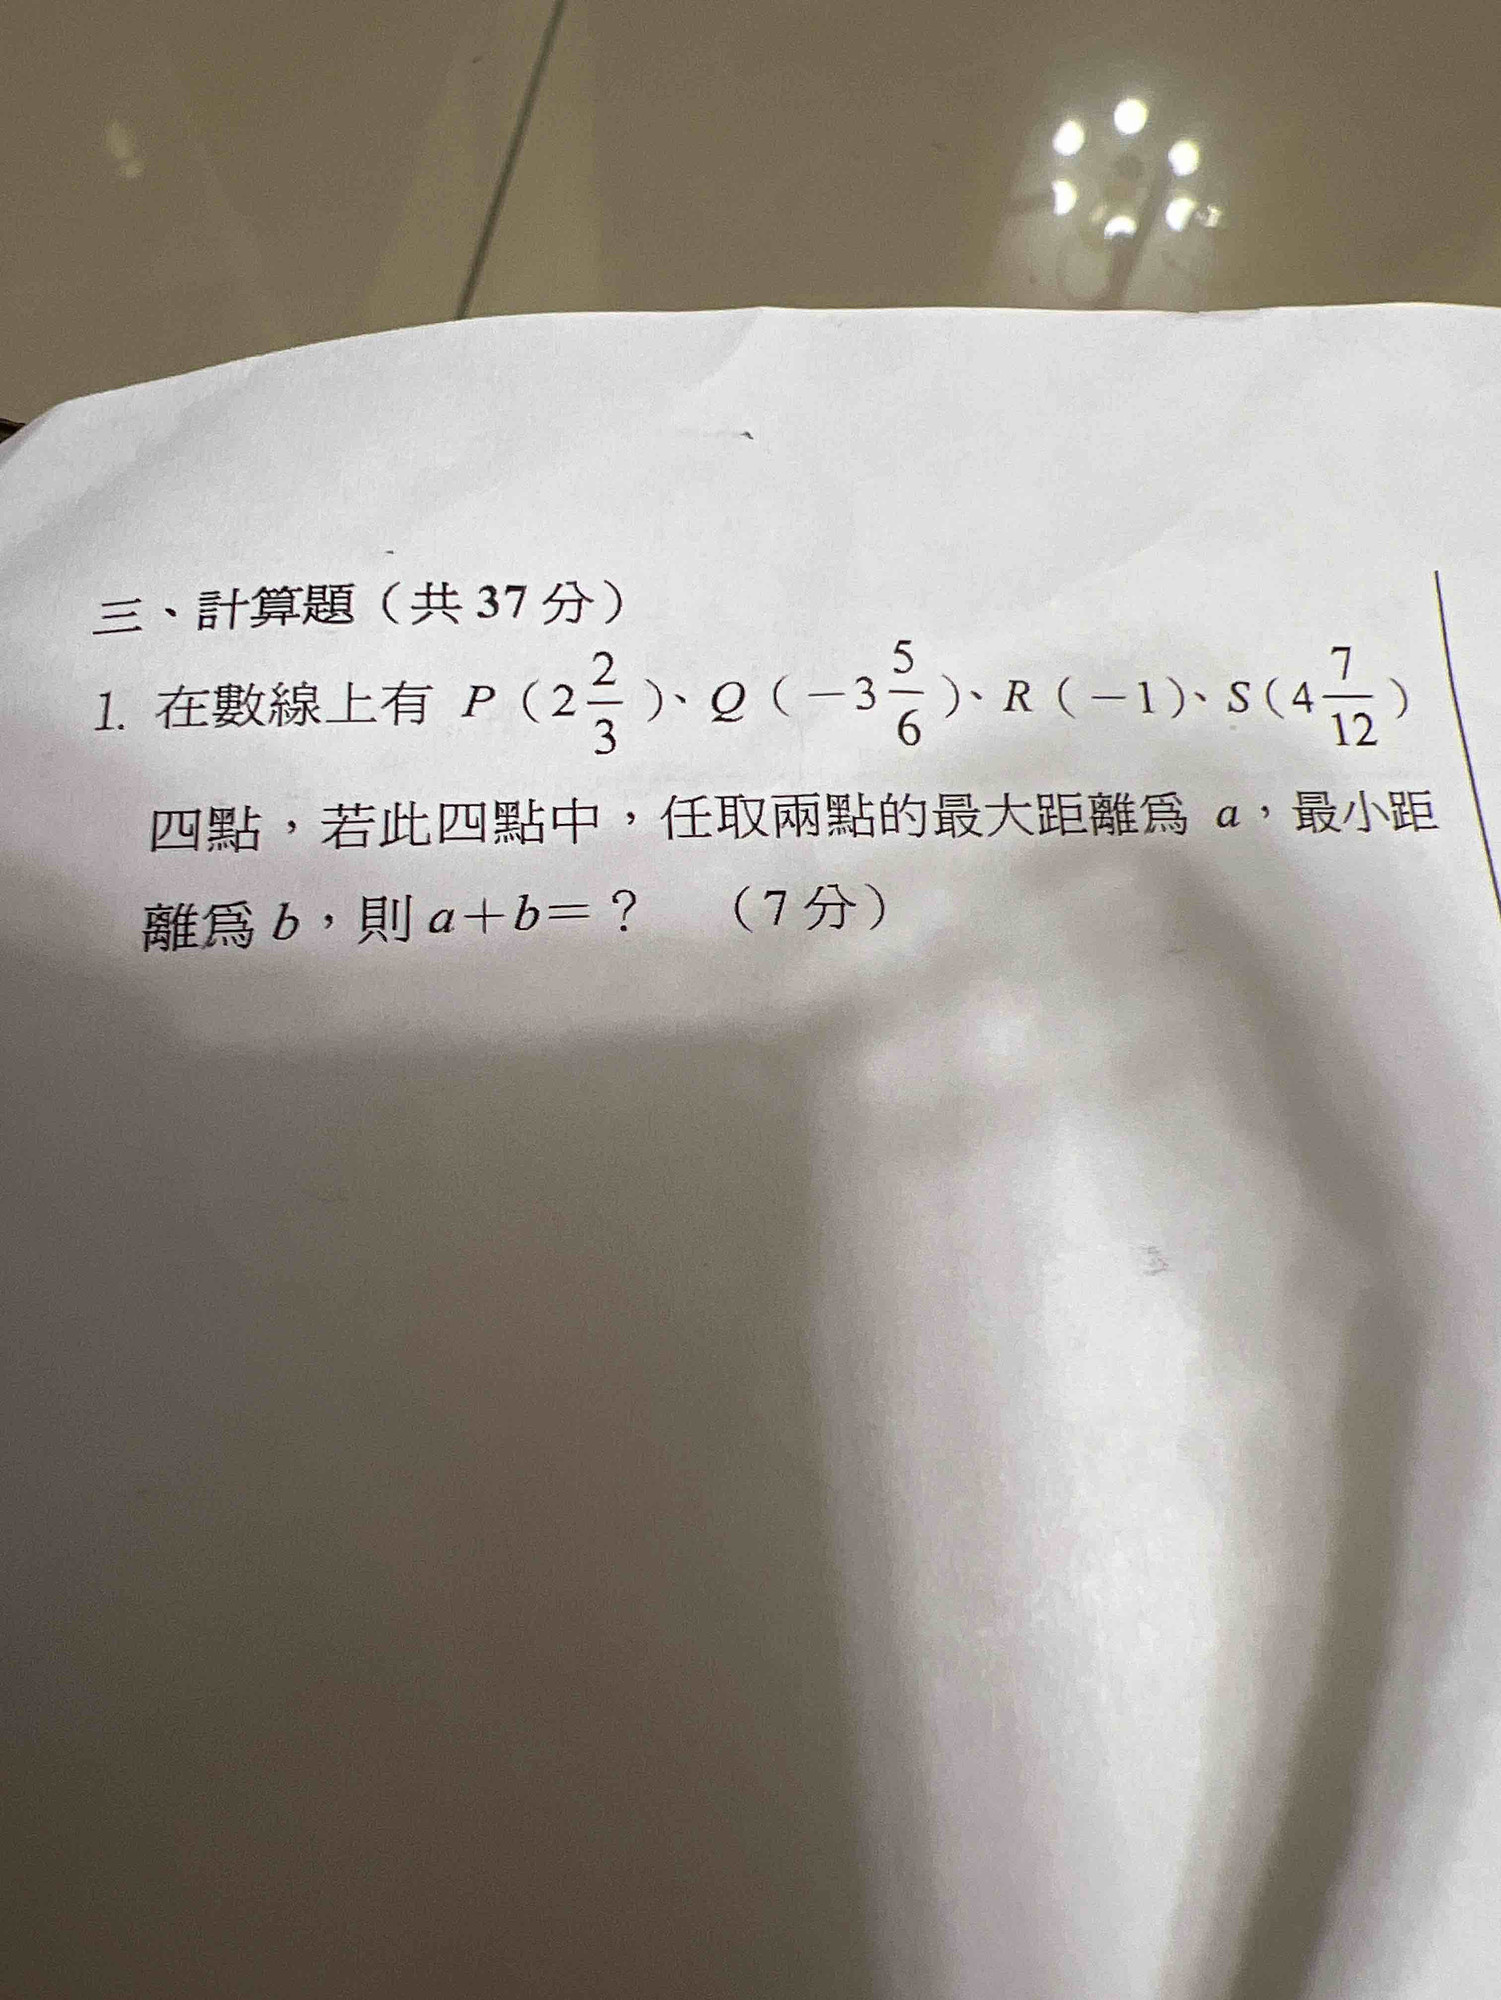 三、計算題（共 37 分）
1. 在數線上有 P（2 2/3）、Q（－3 5/6）、R（－1）、S（4 7/12）
四點，若此四點中，任取兩點的最大距離爲 a，最小距
離爲 b，則 a＋b＝？　（7 分）